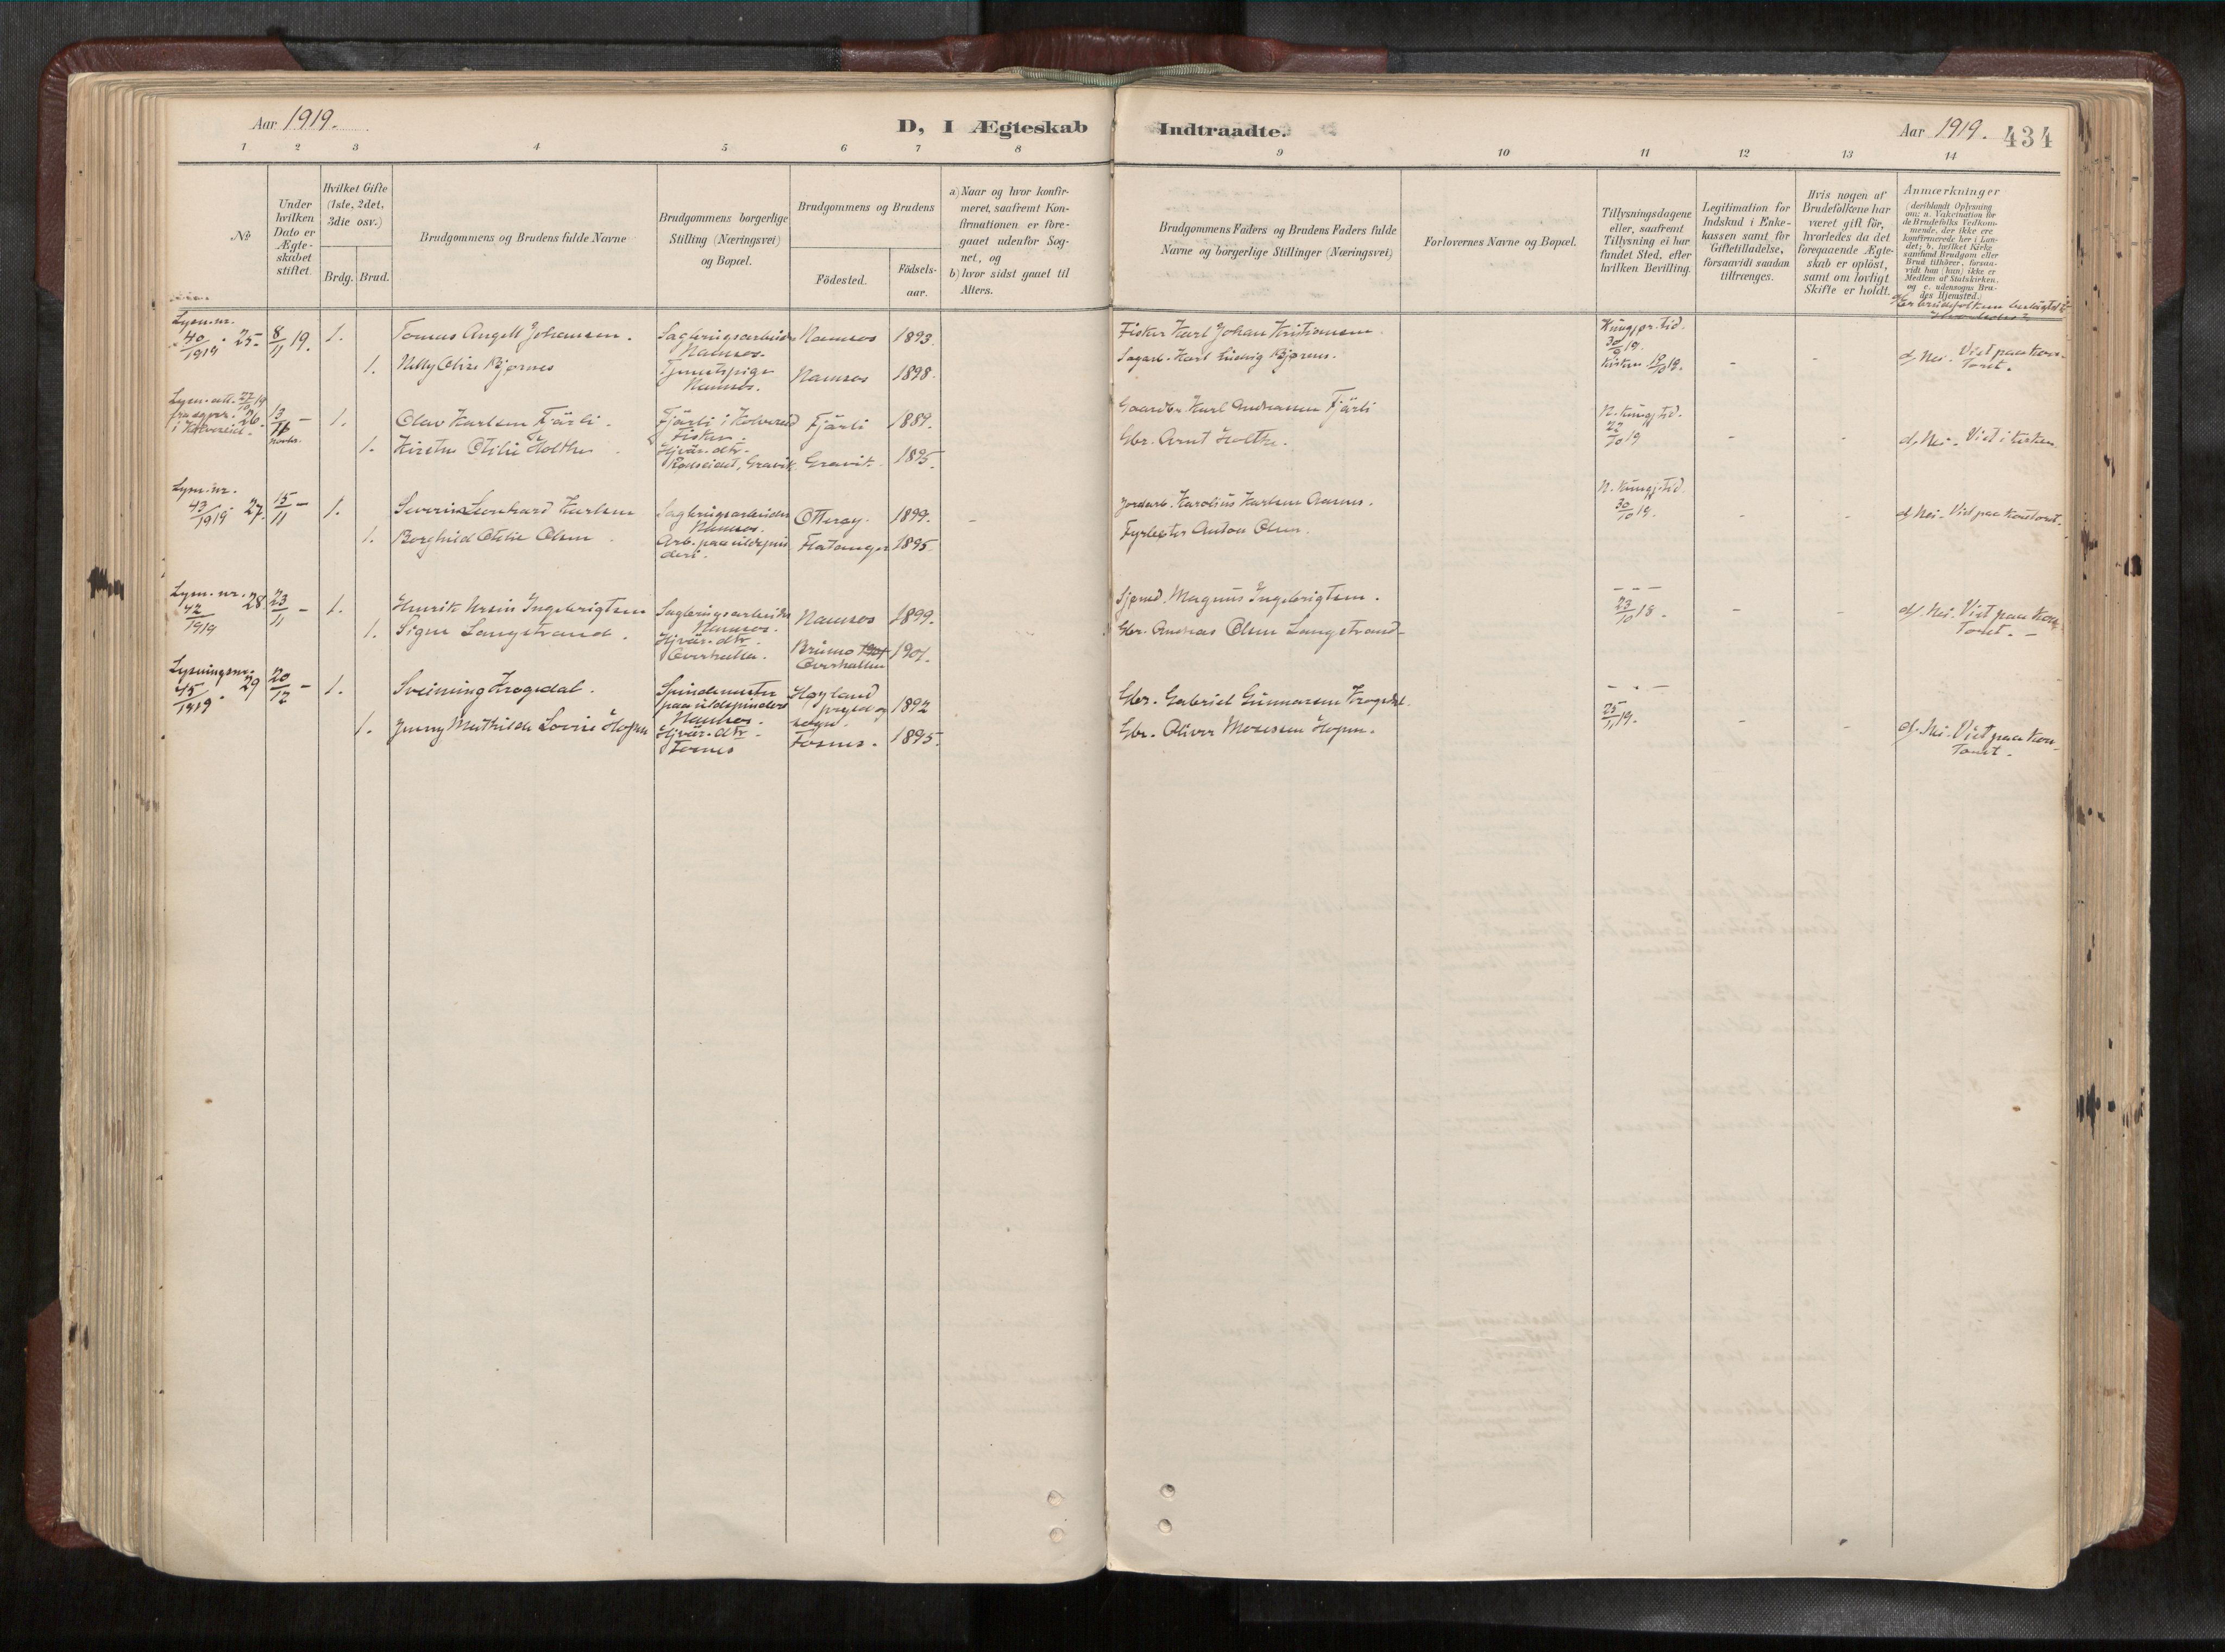 Aar 1919.
D, I Ægteskab
Indtraadte.
Aar 1919.
434
1 2 3 4 5 6 7 8 9 10 11 12 13 14
№
Under hvilken Dato er Ægteskabet stiftet.
Hvilket Gifte (1ste, 2det, 3die osv.)
Brdg. Brud.
Brudgommens og Brudens fulde Navne
Brudgommens borgerlige Stilling (Næringsvei) og Bopæl.
Brudgommens og Brudens
Födested.
Födselsaar.
a) Naar og hvor konfirmeret, saafremt Konfirmationen er foregaaet udenfor Sognet, og
b) hvor sidst gaaet til Alters.
Brudgommens Faders og Brudens Faders fulde Navne og borgerlige Stillinger (Næringsvei)
Forlovernes Navne og Bopæl.
Tillysningsdagene eller, saafremt Tillysning ei har fundet Sted, efter hvilken Bevilling.
Legitimation for Indskud i Enkekassen samt for Giftetilladelse, forsaavidt saadan tiltrænges.
Hvis nogen af Brudefolkene har været gift för, hvorledes da det foregaaende Ægteskab er oplöst, samt om lovligt Skifte er holdt.
Anmærkninger
(deriblandt Oplysning om: a. Vakcination for de Brudefolks Vedkommende, der ikke ere konfirmerede her i Landet; b. hvilket Kirkesamfund Brudgom eller Brud tilhörer, forsaavidt han (hun) ikke er Medlem af Statskirken, og c. udensogns Brudes Hjemsted.)
Lysn. nr. 40/1919. 25. 8/11 19. 1. Tomas Angell Johansen. Sagbrugsarbeider Namsos. Namsos 1893. Fisker Karl Johan Kristiansen. Kungjør. tid. 30/9 19.
1. Nelly Olise Bjørnes Tjenestepige Namsos. Namsos 1898. Sagarb. Karl Ludvig Bjørnes. Kirken 19/10 19. - - d, Nei. Viet paa kontoret.
Lysn. att. 27/10 19 fra sgpr. i Kolvereid. 26. 13/11 - novbr. 1. Olav Karlsen Fjärli. Fjärli i Kolvereid Fisker. Fjärli 1889. Gaardbr. Karl Andreassen Fjärli N. Kungj. tid. 22/10 19
1. Kirstine Otilie Holthe Hjvär. dtr. Gravik. Gravik. 1895. Gbr. Arnt Holthe. - - d, Nei. Viet i kirken
Lysn. nr. 43/1919. 27. 15/11 - 1. Severin Leonhard Karlsen Sagbrugsarbeider Namsos. Otterøy. 1899. - Jordarb. Karolius Karlsen Aasnes. N. Kungj. tid. 30/10 19. - - d, Nei. Viet paa kontoret.
1. Borghild Otilie Olsen. Arb. paa uldspinderi. Flatanger 1895. Fyrbøter Anton Olsen.
Lysn. nr. 42/1919 28. 23/11 - 1. Henrik Ursin Ingebrigtsen Sagbrugsarbeider Namsos. Namsos 1899. Sjømd. Magnus Ingebrigtsen. - - - 23/10 18. - - d, Nei. Viet paa kontoret. -
1. Signe Langstrand. Hjvär. dtr. Overhalla. Overhallen 1901. Gbr. Andreas Olsen Langstrand
Lysningsnr. 45/1919. 29 20/12 - 1. Sveinung Krogedal. Spindemester paa uldspinderi Namsos. Høyland prgjd og sogn. 1892 Gbr. Gabriel Gunnarsen Krogedal. - - - 25/11 19.
1. Jenny Mathilde Lovise Hopen Hjvär. dtr. Fosnes Fosnes. 1895. Gbr. Oliver Mosessen Hopen. - - d. Nei. Viet paa kontoret.